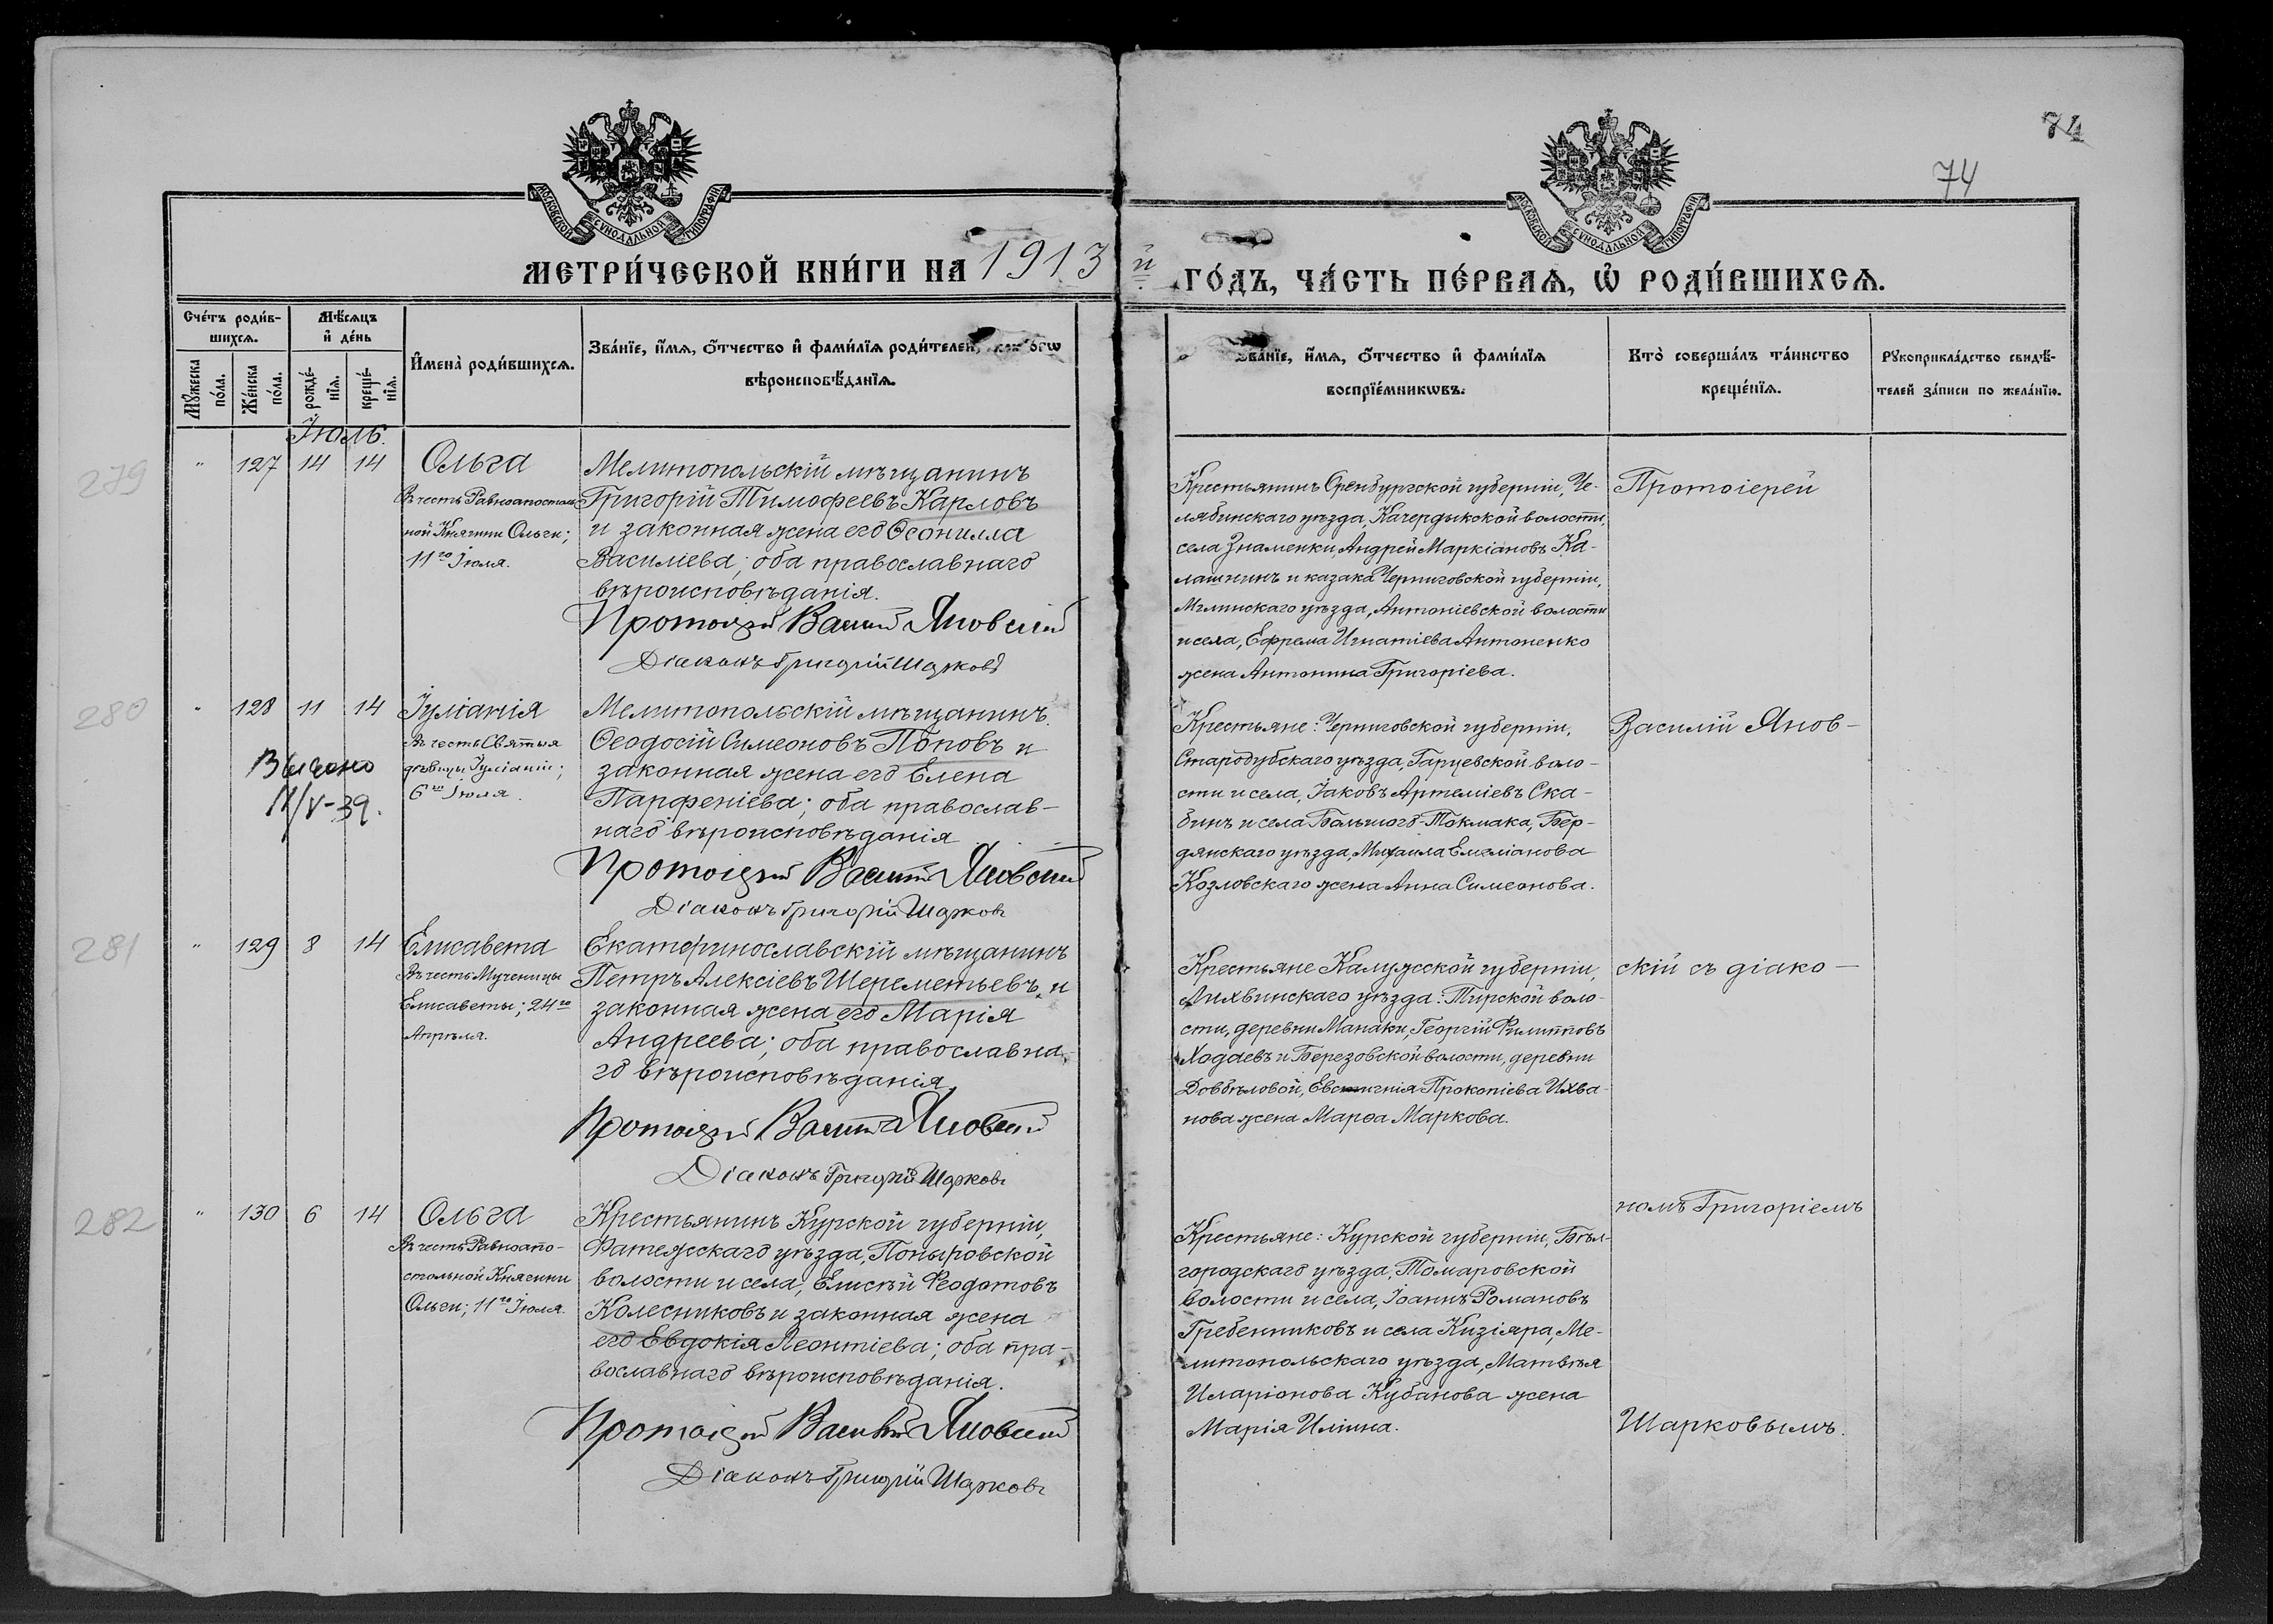 74
74
МОСКОВСКОЙ СѴНОДАЛЬНОЙ ТИПОГРАФІИ
МОСКОВСКОЙ СѴНОДАЛЬНОЙ ТИПОГРАФІИ
МЕТРИ́ЧЕСКОЙ КНИ́ГИ НА 1913 й ГО́ДЪ, ЧА́СТЬ ПЕ́РВАѦ, Ѡ РОДИ́ВШИХСѦ.
Сче́тъ роди́в-
шихсѧ.
Мꙋ́жеска
по́ла.
Же́нска
по́ла.
Мѣ́сѧцъ
и де́нь
рожде́-
нїѧ.
креще́-
нїѧ.
И҆мена̀ роди́вшихсѧ.
Зва́нїе, и҆́мѧ, ѻ҆́тчество и҆ фами́лїѧ роди́телей,
вѣроисповѣ́данїѧ.
Зва́нїе, и҆́мѧ, ѻ҆́тчество и҆ фами́лїѧ
воспрїе́мникѡвъ.
Кто̀ соверша́лъ та́инство
креще́нїѧ.
Рꙋкоприкла́дство свидѣ́-
телей за́писи по жела́нїю.
Іюль.
279
" 127 14 14
Ольга
Въ честь Равноапостоль
ной Княгини Ольги;
11го Іюля.
Мелитопольскій мѣщанинъ
Григорій Тимофеевъ Карловъ
и законная жена его Ѳеонилла
Василіева; оба православнаго
вѣроисповѣданія.
Протоіерей Василій Яновскій
Діаконъ Григорій Шарковъ
Крестьянинъ Оренбургской губерніи, Че-
лябинскаго уѣзда, Качердыкской волости,
села Знаменки, Андрей Маркіановъ Ка-
лашнинъ и казака Черниговской губерніи,
Мглинскаго уѣзда, Антоніевской волости
и села, Ефрема Игнатіева Антоненко
жена Антонина Григоріева.
Протоіерей
280
" 128 11 14
Іуліанія
Въ честь Святыя
дѣвицы Іуліаніи;
6го Іюля.
Выдано
11/V-39.
Мелитопольскій мѣщанинъ
Ѳеодосій Симеоновъ Поповъ и
законная жена его Елена
Парфеніева; оба православ-
наго вѣроисповѣданія
Протоіерей Василій Яновскій
Діаконъ Григорій Шарковъ
Крестьяне: Черниговской губерніи,
Стародубскаго уѣзда, Гарцевской воло-
сти и села, Іаковъ Артеміевъ Ска-
бинъ и села Большого-Токмака, Бер-
дянскаго уѣзда, Михаила Емеліанова
Козловскаго жена Анна Симеонова.
Василій Янов-
281
" 129 8 14
Елисавета
Въ честь Мученицы
Елисаветы; 24го
Апрѣля.
Екатеринославскій мѣщанинъ
Петръ Алексіевъ Шереметьевъ и
законная жена его Марія
Андреева; оба православна-
го вѣроисповѣданія.
Протоіерей Василій Яновскій
Діаконъ Григорій Шарковъ
Крестьяне Калужской губерніи,
Лихвинскаго уѣзда: Тирской воло-
сти, деревни Манаки, Георгій Филипповъ
Ходаевъ и Березовской волости, деревни
Довбѣловой, Прокопіева Ихва-
нова жена Марѳа Маркова.
скій съ діако-
282
" 130 6 14
Ольга
Въ честь Равноапо-
стольной Княгини
Ольги; 11го Іюля.
Крестьянинъ Курской губерніи,
Фатежскаго уѣзда, Поныровской
волости и села, Елисѣй Ѳеодотовъ
Колесниковъ и законная жена
его Евдокія Леонтіева; оба пра-
вославнаго вѣроисповѣданія.
Протоіерей Василій Яновскій
Діаконъ Григорій Шарковъ
Крестьяне: Курской губерніи, Бѣл-
городскаго уѣзда, Томаровской
волости и села, Іоаннъ Романовъ
Гребенниковъ и села Кизіяра, Ме-
литопольскаго уѣзда, Матвѣя
Иларіонова Кубанова жена
Марія Иліина.
номъ Григоріемъ
Шарковымъ.